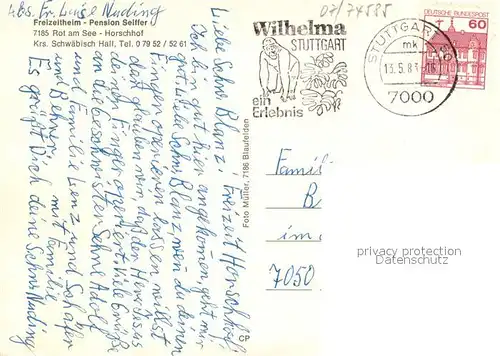 Abs. Fr. Luise Nuding
Freizeitheim - Pension Seiffer
7185 Rot am See - Horschhof
Krs. Schwäbisch Hall, Tel. 0 79 52 / 52 61
Liebe Schw. Blanz! Freizeit Horschhof
Ich bin gut hier angekommen, geht mir
gut. Liebe Schw. Blanz wenn du deinen
Finger operieren lassen willst
darf glauben von, daß der Herr Jesus
deinen Finger operiert. Viele Grüße
an die Geschwister Schw. Adolf
und Familie Lenz und Schäfer
und Behner mit Familie.
Es grüßt Dich deine Schw. Nuding
Foto Müller, 7186 Blaufelden
CP
07/74585
Wilhelma
STUTTGART
ein
Erlebnis
STUTTGART
mk
13.5.83
7000
DEUTSCHE BUNDESPOST
60
Famil
B
im
7050
privacy protection
Datenschutz